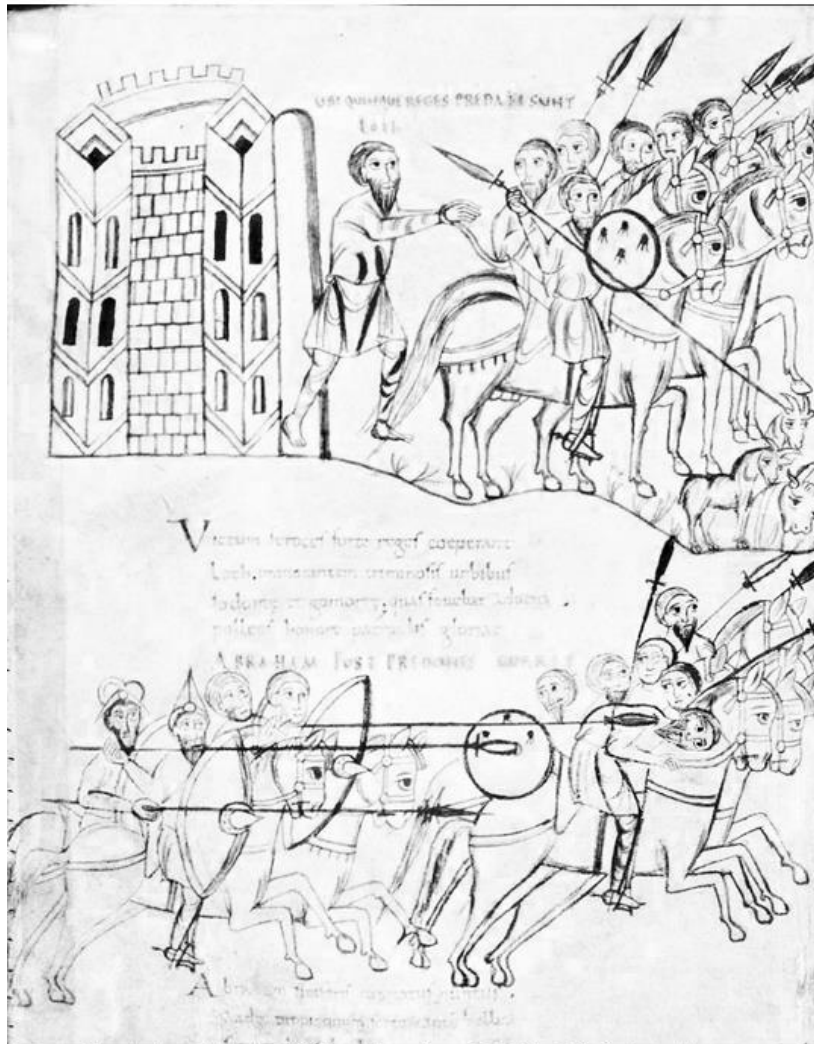 UBI QUINQUE REGES PREDATI SUNT
Loth
Victum feroces forte reges coeperant
Loth, inmorantem criminosis urbibus
sodome et gomorre, quas fouebat aduena
pollens honore patruelis gloriae
ABRAHAM POST PREDONES CURRIT
Abraham sinistris
propinquum